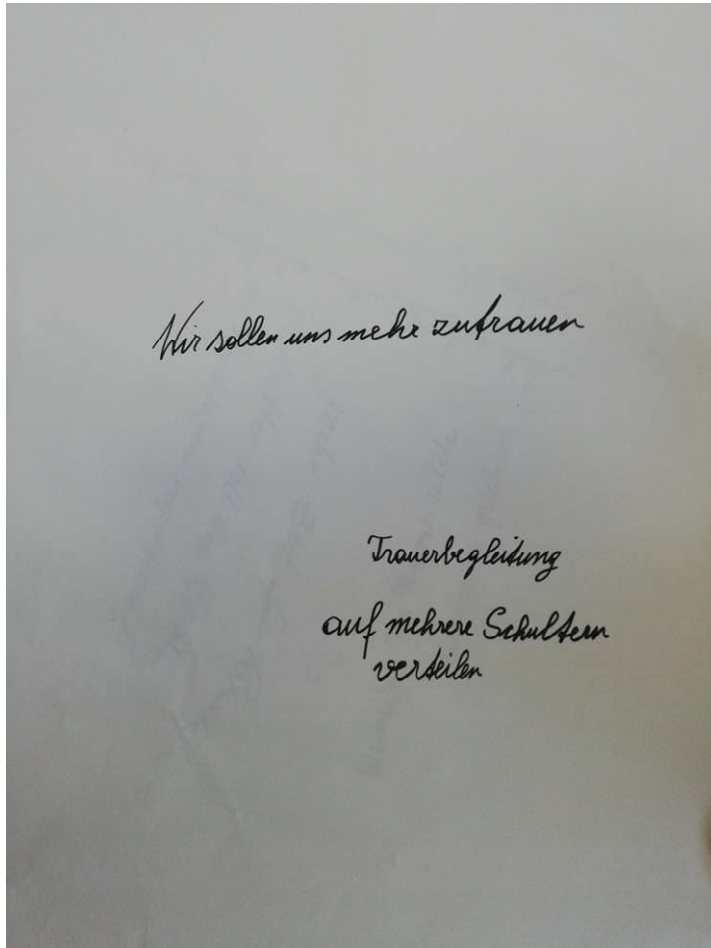 Wir sollen uns mehr zutrauen
Trauerbegleitung
auf mehrere Schultern
verteilen